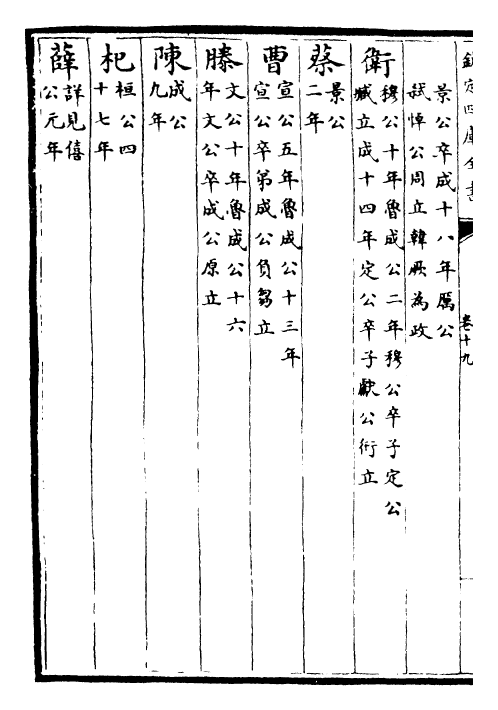 欽定四庫全書
卷十九
景公卒成十八年厲公
弑悼公周立韓厥為政
衛
穆公十年魯成公二年穆公卒子定公
臧立成十四年定公卒子獻公衎立
蔡
景公
二年
曹
宣公五年魯成公十三年
宣公卒弟成公負芻立
滕
文公十年魯成公十六
年文公卒成公原立
陳
成公
九年
杞
桓公四
十七年
薛
詳見僖
公元年